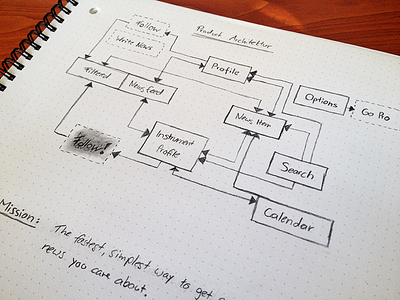 Follow
Product Architektur
Write News
Profile
Filtered
Newsfeed
Options
Go Pro
News Item
Follow!
Instrument
Profile
Search
Calendar
Mission:
The fastest, simplest way to get
news you care about.